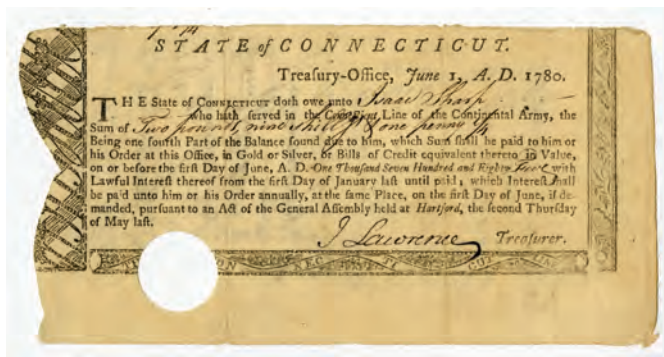 STATE of CONNECTICUT.
Treasury-Office, June 1, A. D. 1780.
THE State of CONNECTICUT doth owe unto Isaac Sharp
who hath served in the Connecticut Line of the Continental Army, the
Sum of Two pounds, nine shillgs & one penny 1/4
Being one fourth Part of the Balance found due to him, which Sum shall be paid to him or
his Order at this Office, in Gold or Silver, or Bills of Credit equivalent thereto in Value,
on or before the first Day of June, A. D. One Thousand Seven Hundred and Eighty Five with
Lawful Interest thereof from the first Day of January last until paid, which Interest shall
be paid unto him or his Order annually, at the same Place, on the first Day of June, if de-
manded, pursuant to an Act of the General Assembly held at Hartford, the second Thursday
of May last.
J Lawrence Treasurer.
ON NEC TI CUT LINE